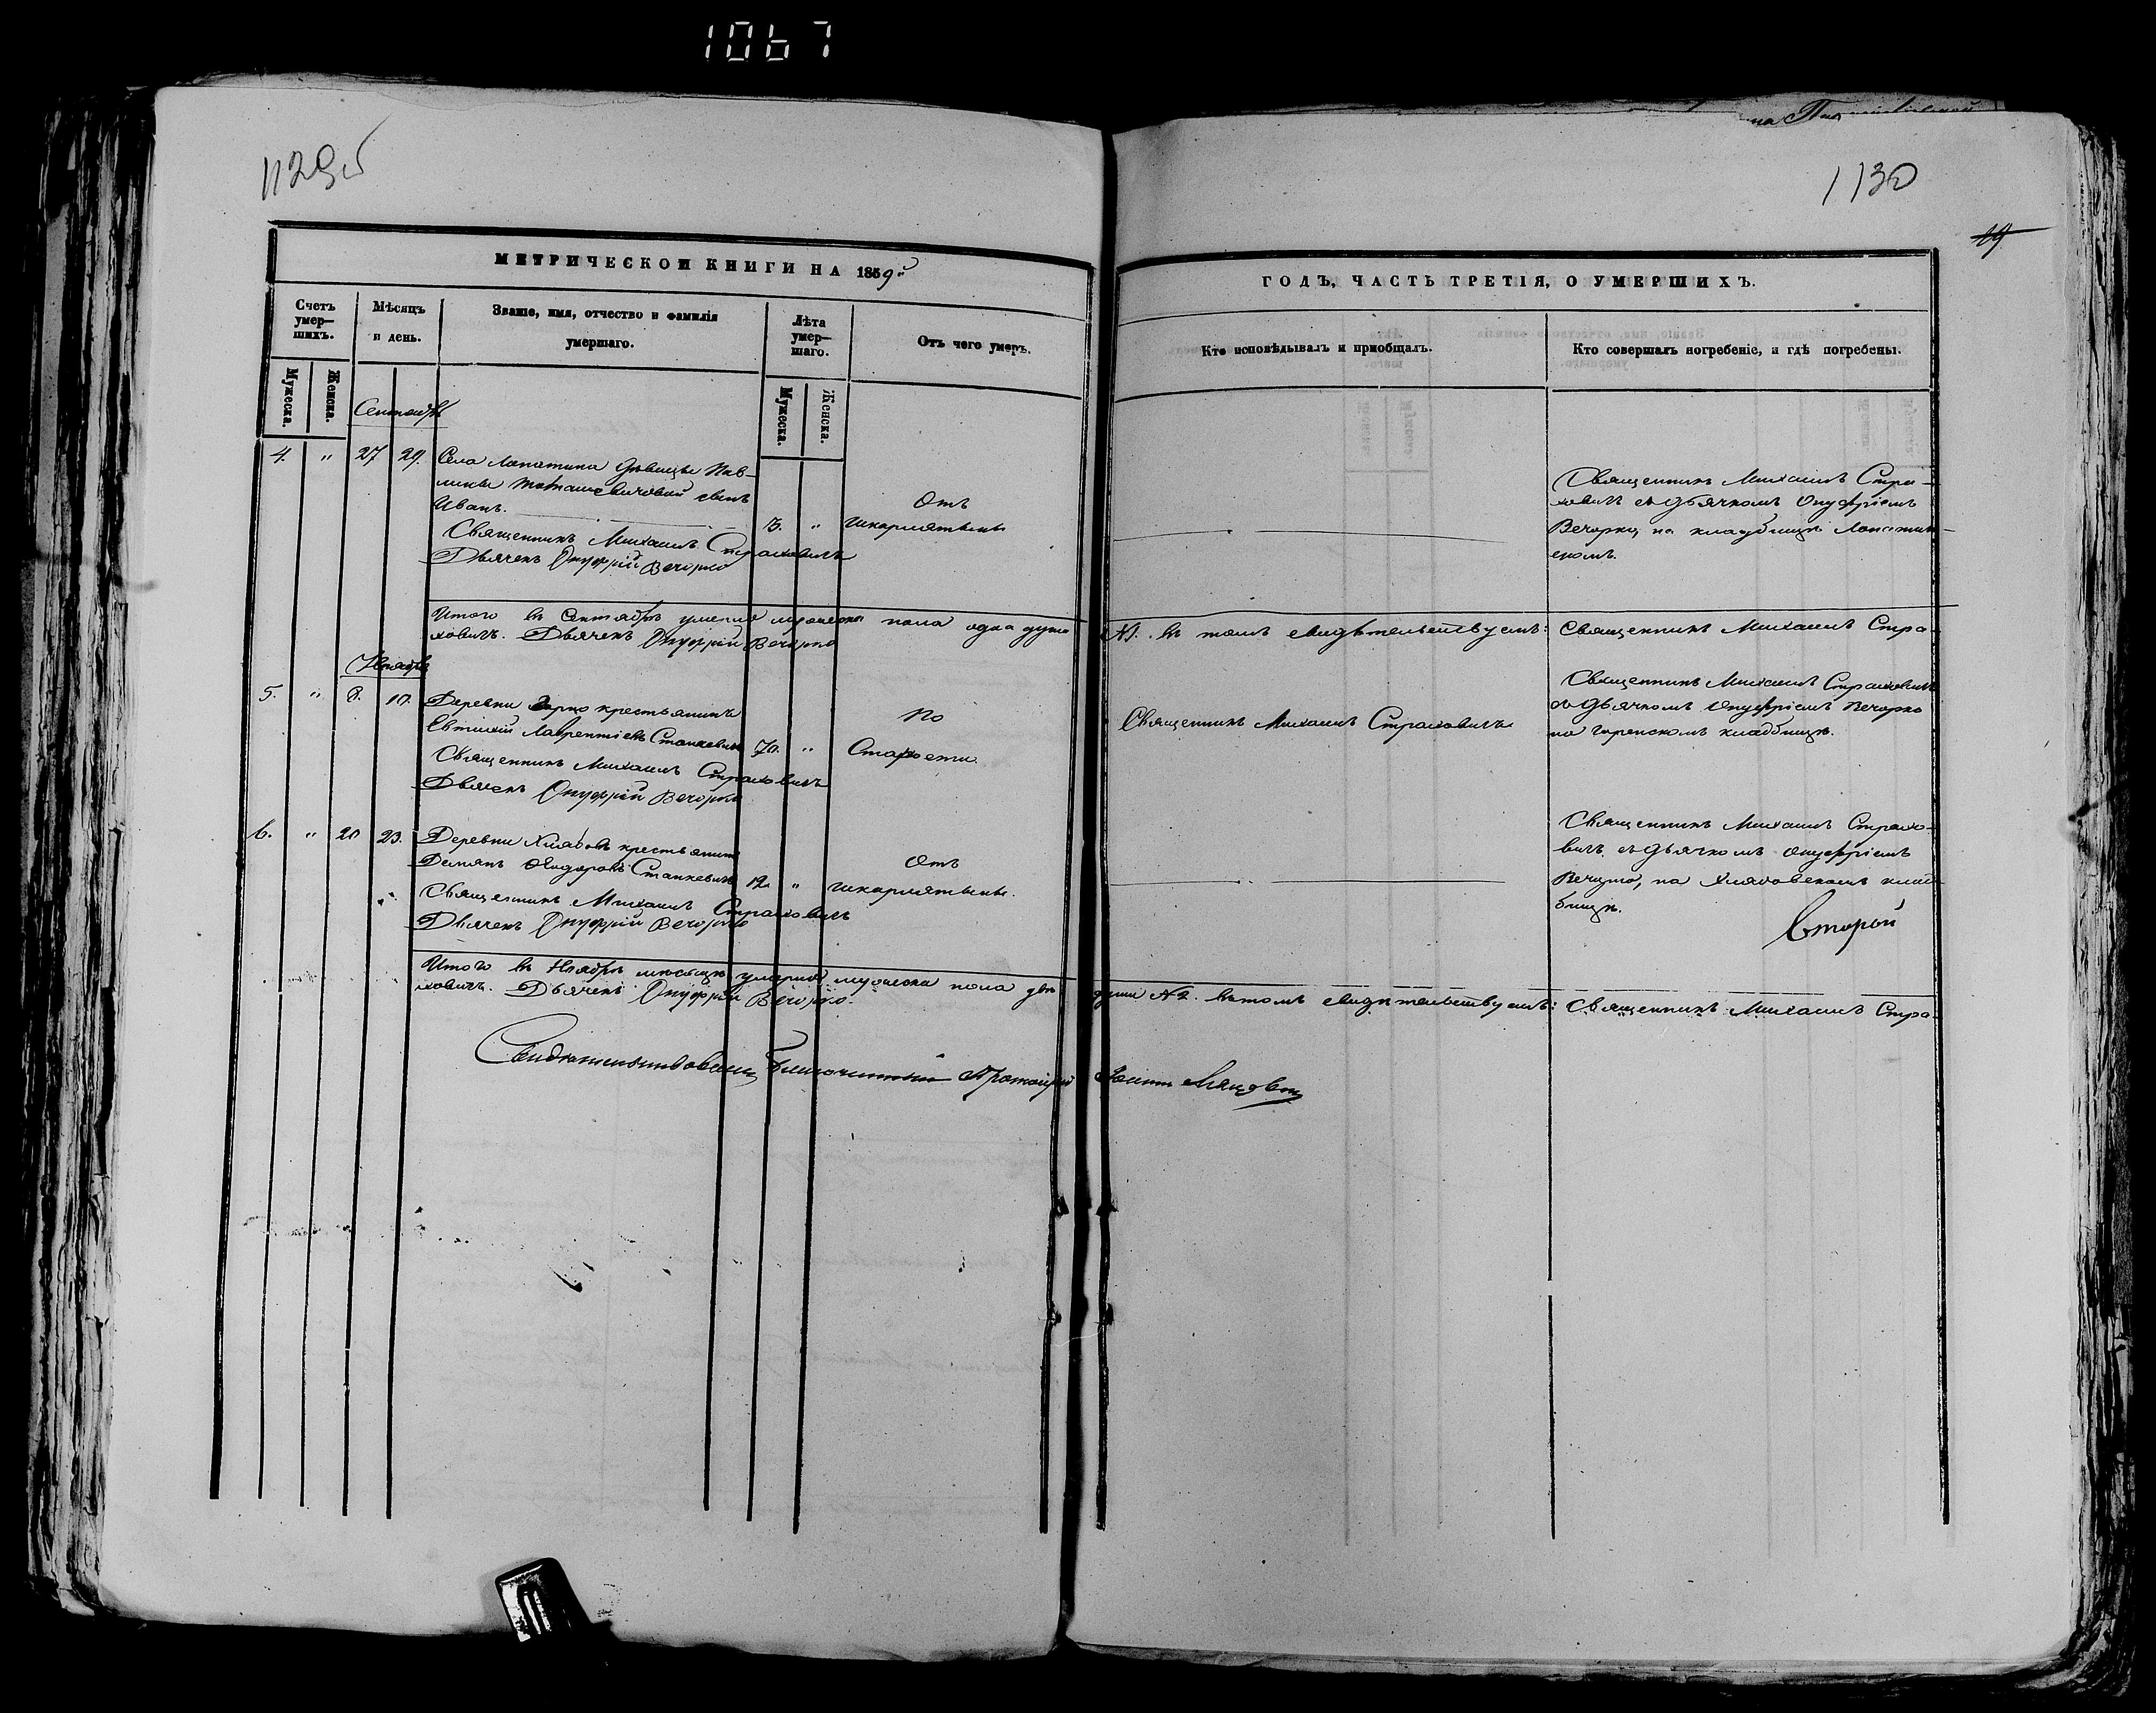 1067
1129об
1130
19.
МЕТРИЧЕСКОЙ КНИГИ НА 1859й
ГОДЪ, ЧАСТЬ ТРЕТІЯ, О УМЕРШИХЪ.
Счетъ умер–шихъ.
Мужеска.
Женска.
Мѣсяцъ и день.
Званіе, имя, отчество и фамилія умершаго.
Лѣта умер–шаго.
Мужеска.
Женска.
Отъ чего умеръ.
Кто исповѣдывалъ и пріобщалъ.
Кто совершалъ погребеніе, и гдѣ погребены.
Сентябрь
4. " 27 29. Села Лопатина дѣвицы Пав-
лины сынъ
Иванъ. 3. "
Отъ
шкарлятины
Священникъ Михаилъ Страховичъ
Дьячекъ Онуфрій Вечорко
Священникъ Михаилъ Стра-
ховичъ съ дьячкомъ Онуфріемъ
Вечорко, на кладбищѣ Лопатин-
скомъ.
Итого въ Сентябрѣ умерло мужеска пола одна душа №1. въ томъ свидѣтельствуемъ: Священникъ Михаилъ Стра-
ховичъ. Дьячекъ Онуфрій Вечорко
Ноябрь
5. " 8. 10. Деревни крестьянинъ
Евтихій Лаврентіевъ Станкевичъ 70. "
По
Старости.
Священникъ Михаилъ Страховичъ
Дьячекъ Онуфрій Вечорко
Священникъ Михаилъ Страховичъ
Священникъ Михаилъ Страховичъ
съ дьячкомъ Онуфріемъ Вечорко
на кладбищѣ.
6. " 20 23. Деревни крестьянинъ
Демянъ Станкевичъ 12. "
Отъ
шкарлятины.
Священникъ Михаилъ Страховичъ
Дьячекъ Онуфрій Вечорко
Священникъ Михаилъ Страхо-
вичъ съ дьячкомъ Онуфріемъ
Вечорко, на клад-
бищѣ.
Второй
Итого въ Ноябрѣ мѣсяцѣ умерло мужеска пола двѣ души №2. въ томъ свидѣтельствуемъ: Священникъ Михаилъ Стра-
ховичъ. Дьячекъ Онуфрій Вечорко.
Благочинный Протоіерей